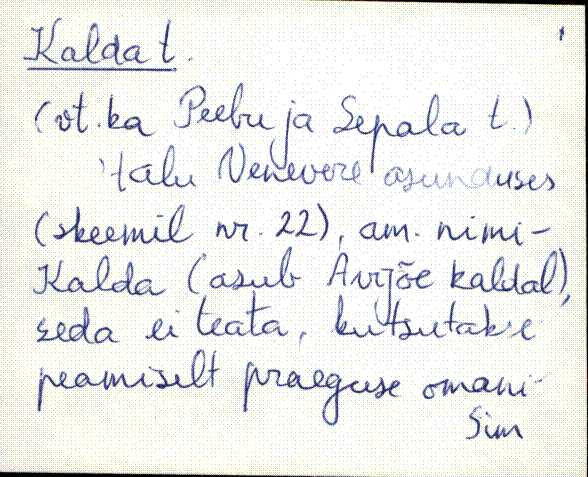 Kalda t.
(vt. ka Peebu ja Sepala t.)
talu Venevere asunduses
(skeemil nr. 22), am. nimi-
Kalda (asub Avijõe kaldal),
seda ei teata, kutsutakse
peamiselt praeguse omani-
Sim